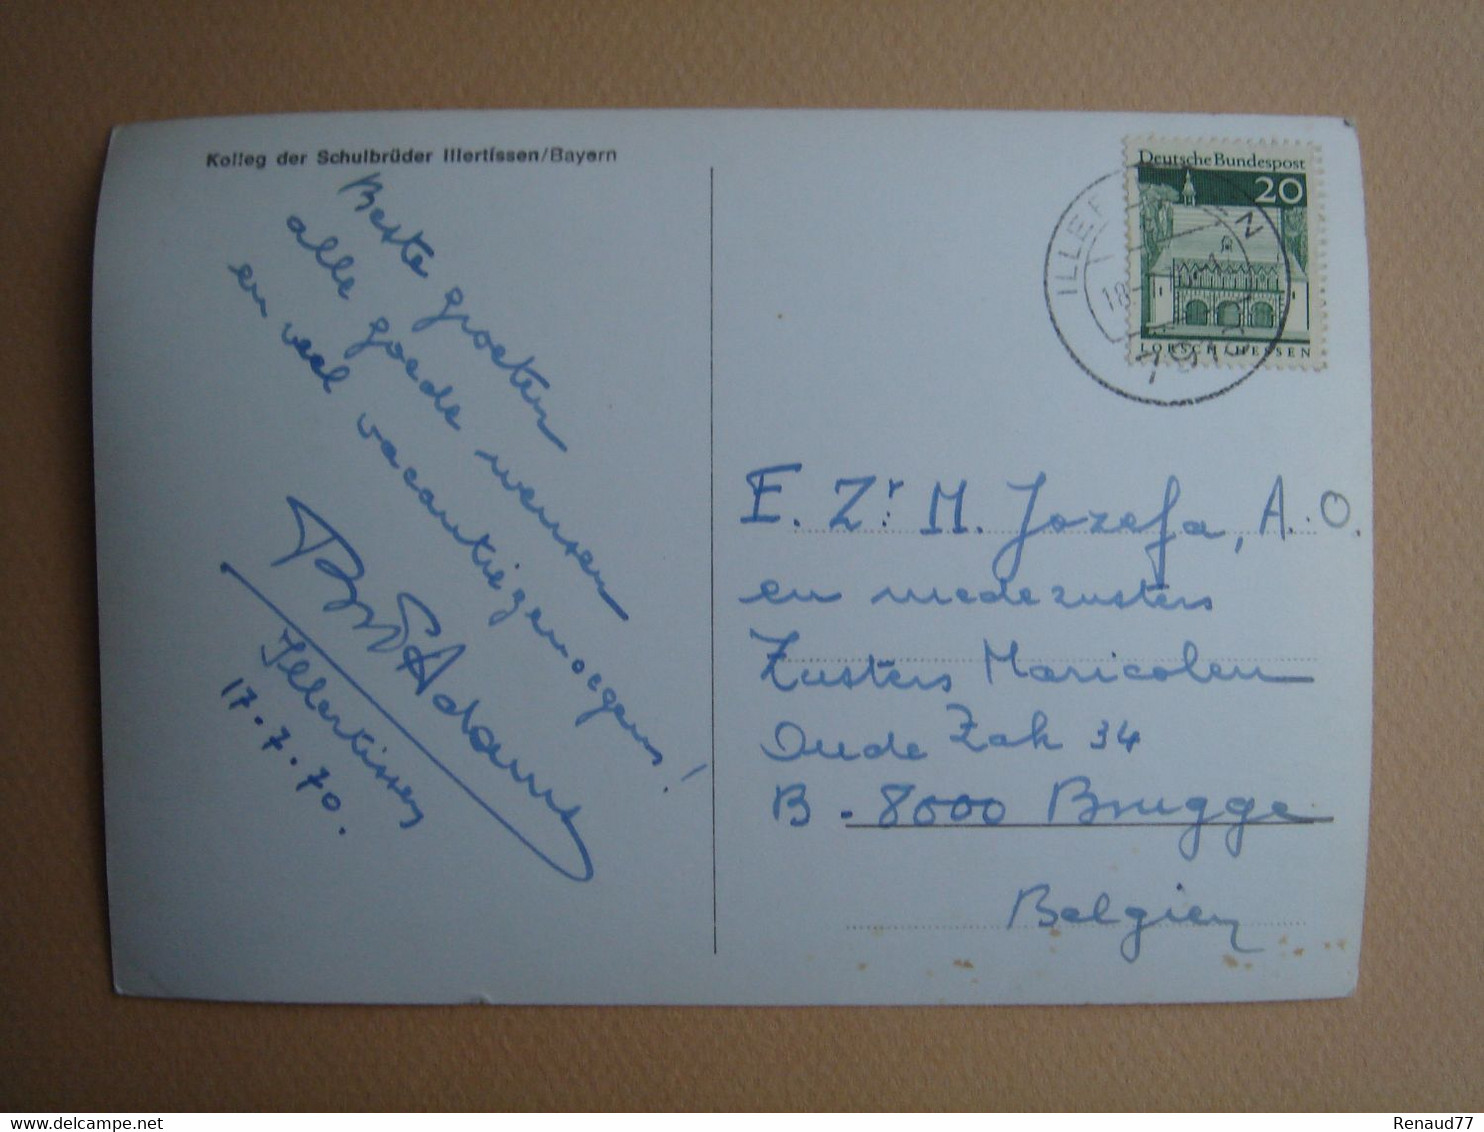 Kolleg der Schulbrüder Illertissen/Bayern
Beste groeten
alle goede wensen
en veel vacantiegenoegens!
Adams
Illertissen
17.7.70.
Deutsche Bundespost
20
LORSCH/HESSEN
18
E. Zr. M. Jozefa, A.O.
en medezusters
Zusters Maricolen
Oude Zak 34
B - 8000 Brugge
Belgien
Renaud77